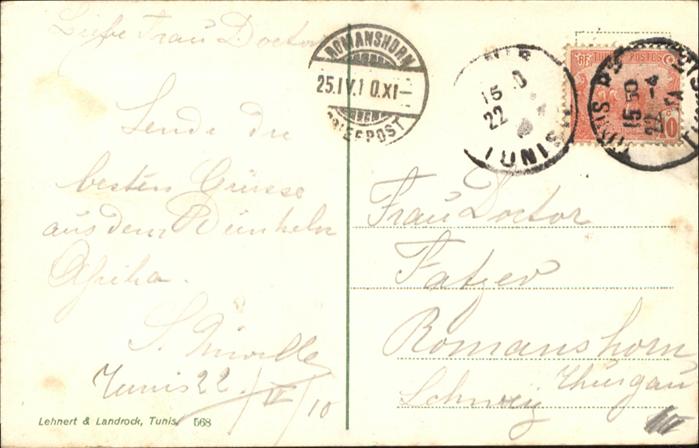 Liebe Frau Doctor
Sende die
besten Grüsse
aus dem Dunkeln
Afrika.
Tunis 22./IV/10
Lehnert & Landrock, Tunis. 568
ROMANSHORN
25.IV.10.XI-
BRIEFPOST
15
22
POSTES
10
15 30
22 -4
Frau Doctor
Fatzer
Romanshorn
Thurgau
Schweiz